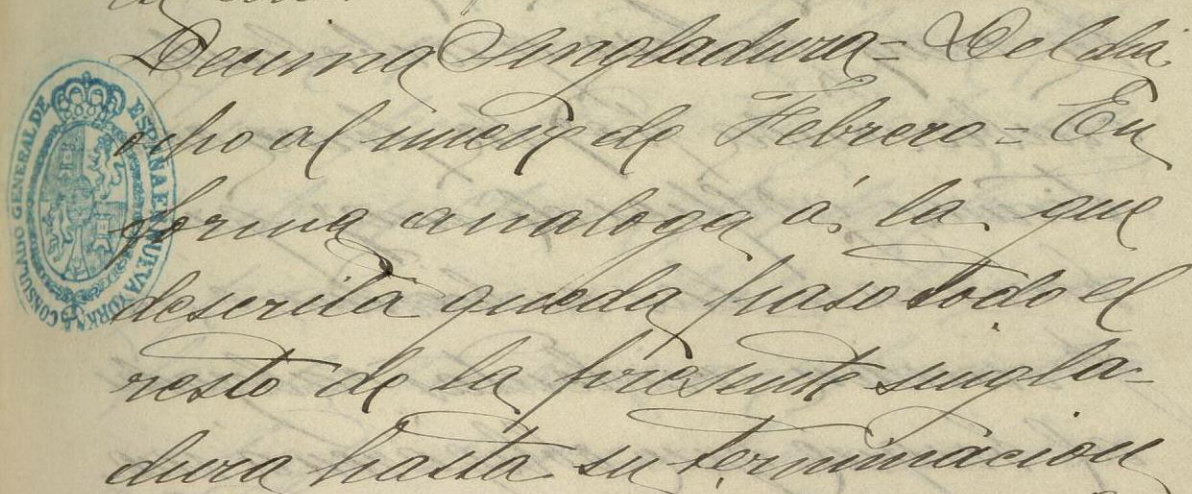 Decima Singladura = Del dia
ocho al nueve de Febrero = En
forma analoga á la que
descrita queda paso todo el
resto de la presente singla-
dura hasta su terminacion
CONSULADO GENERAL DE ESPAÑA EN NUEVA YORK